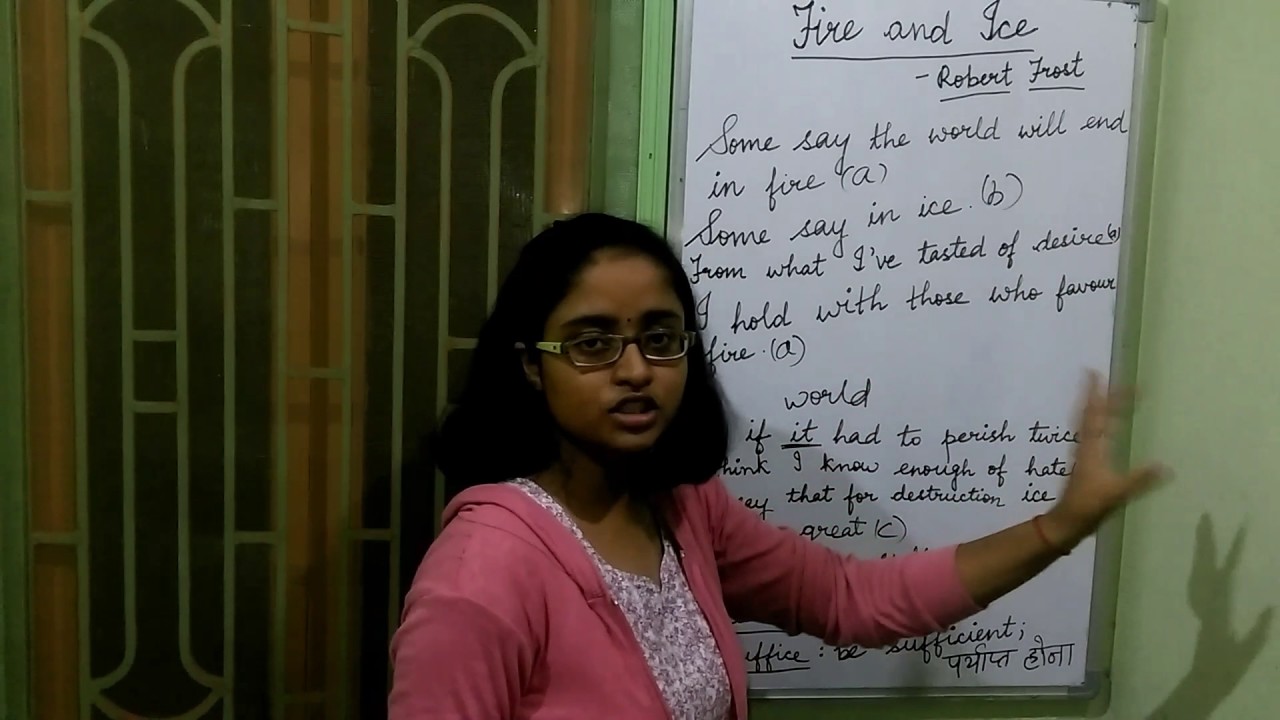 Fire and Ice
- Robert Frost
Some say the world will end
in fire (a)
Some say in ice. (b)
From what I've tasted of desire (a)
I hold with those who favour
fire. (a)
world
if it had to perish twice
think I know enough of hate
say that for destruction ice
great (c)
suffice : be sufficient;
पर्याप्त होना